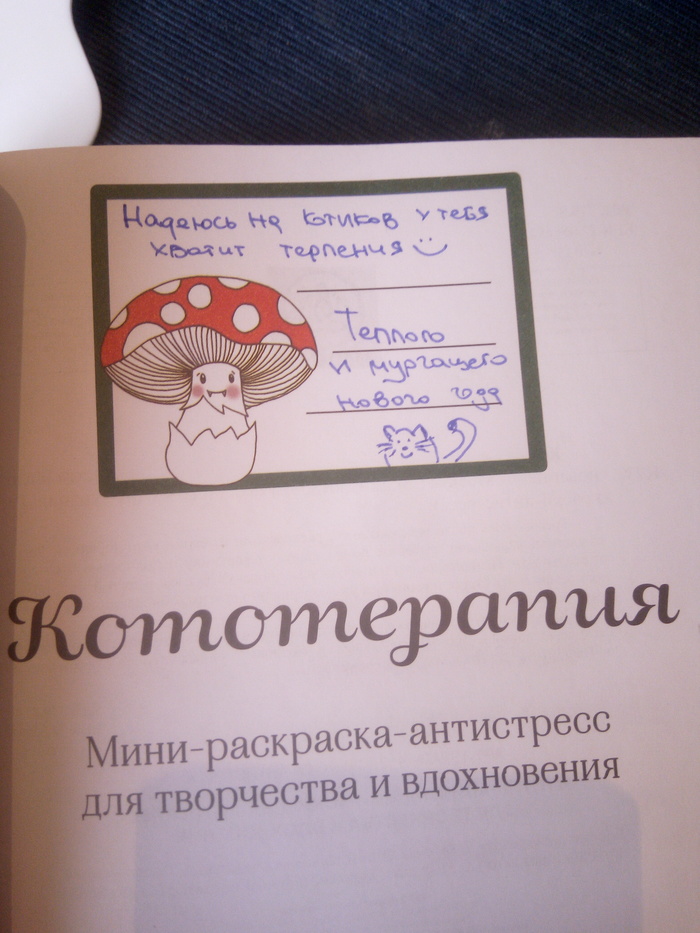 Надеюсь на котиков у тебя
хватит терпения
Теплого
и мургащего
нового года
Кототерапия
Мини-раскраска-антистресс
для творчества и вдохновения